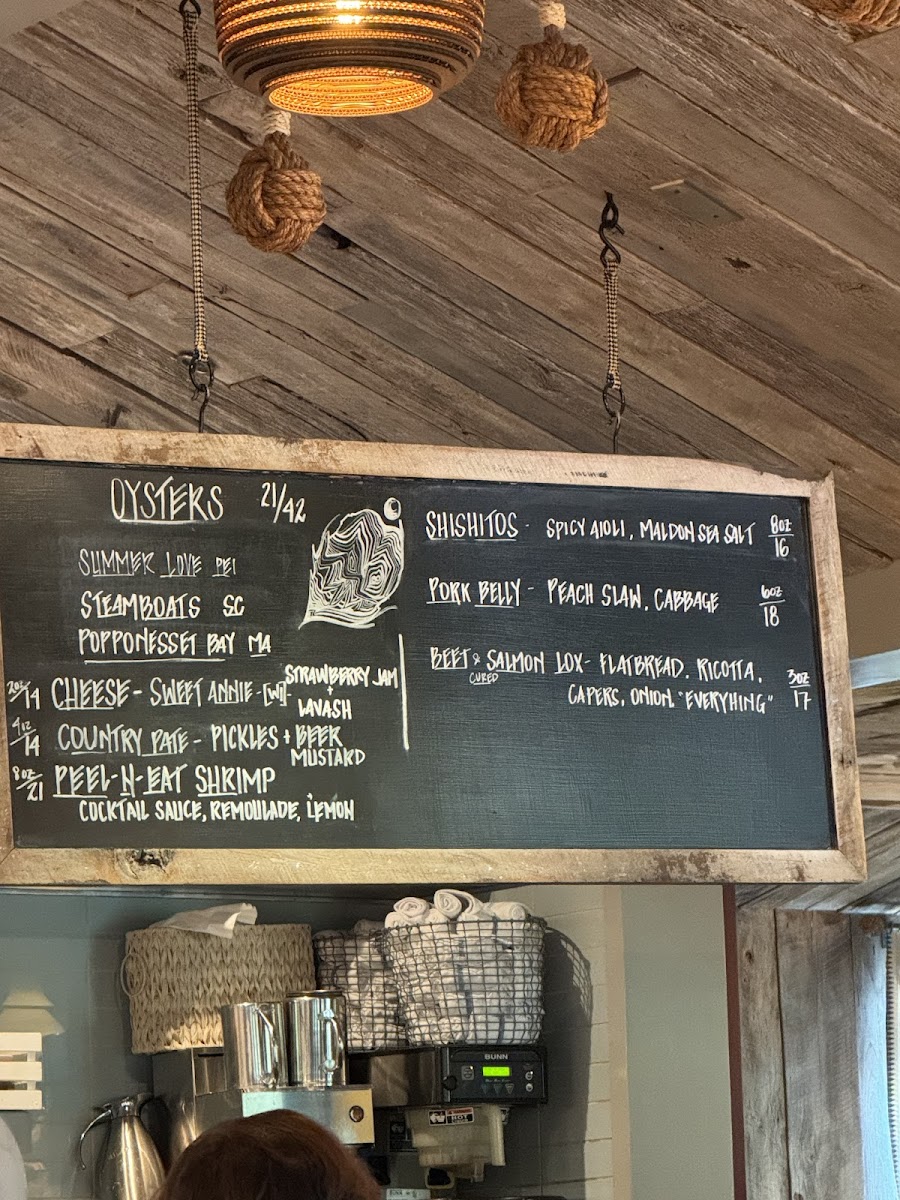 OYSTERS 21/42
SUMMER LOVE PEI
STEAMBOATS SC
POPPONESSET BAY MA
2oz/14 CHEESE - SWEET ANNIE - [WI] STRAWBERRY JAM
+
LAVASH
4oz/14 COUNTRY PATE - PICKLES + BEER
MUSTARD
8oz/21 PEEL-N-EAT SHRIMP
COCKTAIL SAUCE, REMOULADE, LEMON
SHISHITOS - SPICY AIOLI, MALDON SEA SALT 8oz/16
PORK BELLY - PEACH SLAW, CABBAGE 6oz/18
BEET & SALMON LOX - FLATBREAD, RICOTTA, 3oz/17
CURED
CAPERS, ONION, "EVERYTHING"
BUNN
HOT